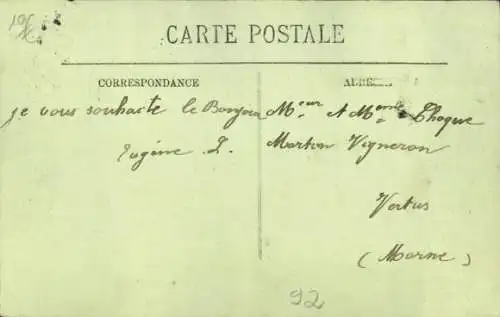 19
CARTE POSTALE
CORRESPONDANCE
je vous souhaite le Bonjour
Eugène L.
ADRESSE
Mr et Mme Choque
Marton Vigneron
Vertus
(Marne)
92